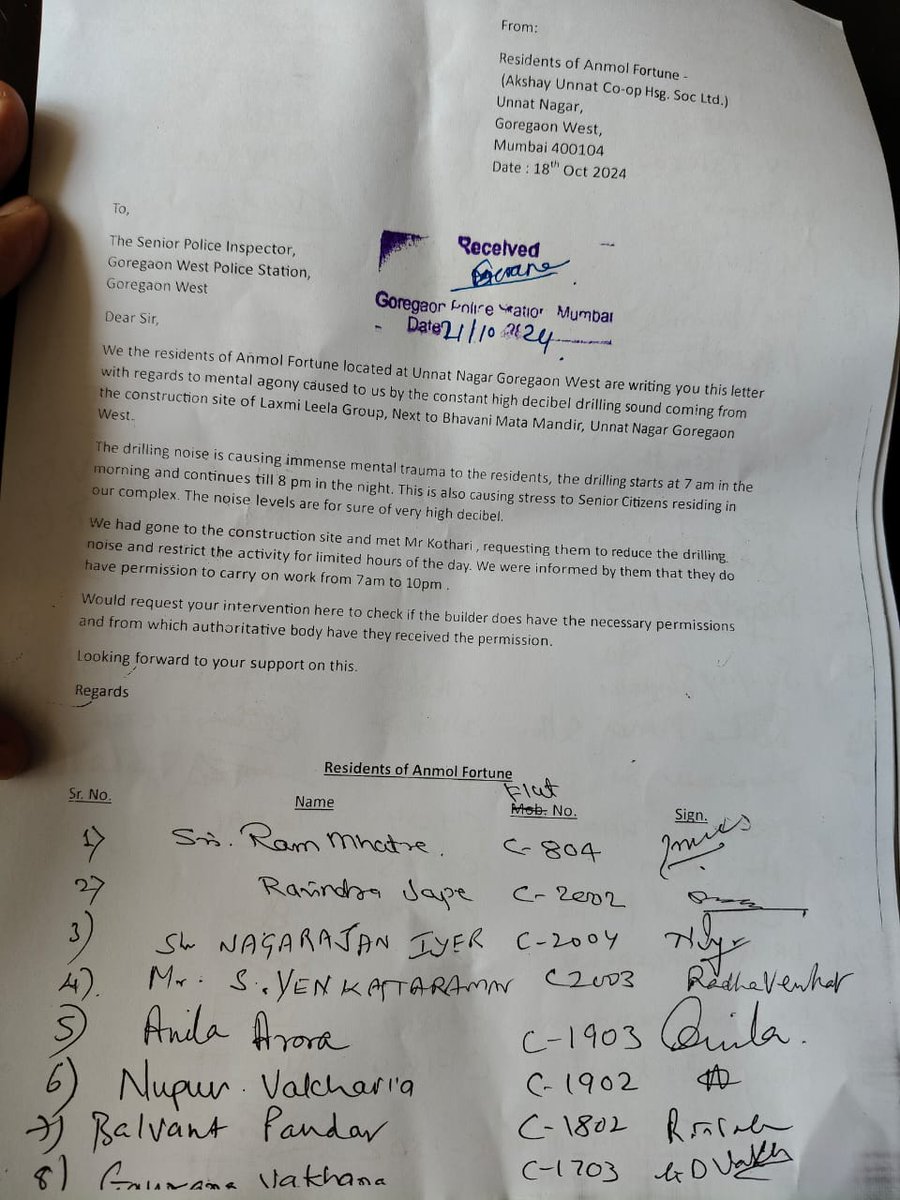 From:
Residents of Anmol Fortune -
(Akshay Unnat Co-op Hsg. Soc Ltd.)
Unnat Nagar,
Goregaon West,
Mumbai 400104
Date : 18th Oct 2024
To,
The Senior Police Inspector,
Goregaon West Police Station,
Goregaon West
Received
Goregaon Police Station Mumbai
Date 21/10 2024
Dear Sir,
We the residents of Anmol Fortune located at Unnat Nagar Goregaon West are writing you this letter
with regards to mental agony caused to us by the constant high decibel drilling sound coming from
the construction site of Laxmi Leela Group, Next to Bhavani Mata Mandir, Unnat Nagar Goregaon
West.
The drilling noise is causing immense mental trauma to the residents, the drilling starts at 7 am in the
morning and continues till 8 pm in the night. This is also causing stress to Senior Citizens residing in
our complex. The noise levels are for sure of very high decibel.
We had gone to the construction site and met Mr Kothari , requesting them to reduce the drilling
noise and restrict the activity for limited hours of the day. We were informed by them that they do
have permission to carry on work from 7am to 10pm .
Would request your intervention here to check if the builder does have the necessary permissions
and from which authoritative body have they received the permission.
Looking forward to your support on this.
Regards
Residents of Anmol Fortune
Flat
Sr. No. Name Mob. No. Sign.
1) Ram Mhatre. C-804
2) Ravindra Jape C-2002
3) NAGARAJAN IYER C-2004
4). Mr. S. VENKATTARAMAN C2003 RadhaVenkat
5) Anila Arora C-1903 Anila.
6) Nupur Vakharia C-1902
7) Balvant Pandar C-1802
8) Vakhana C-1703